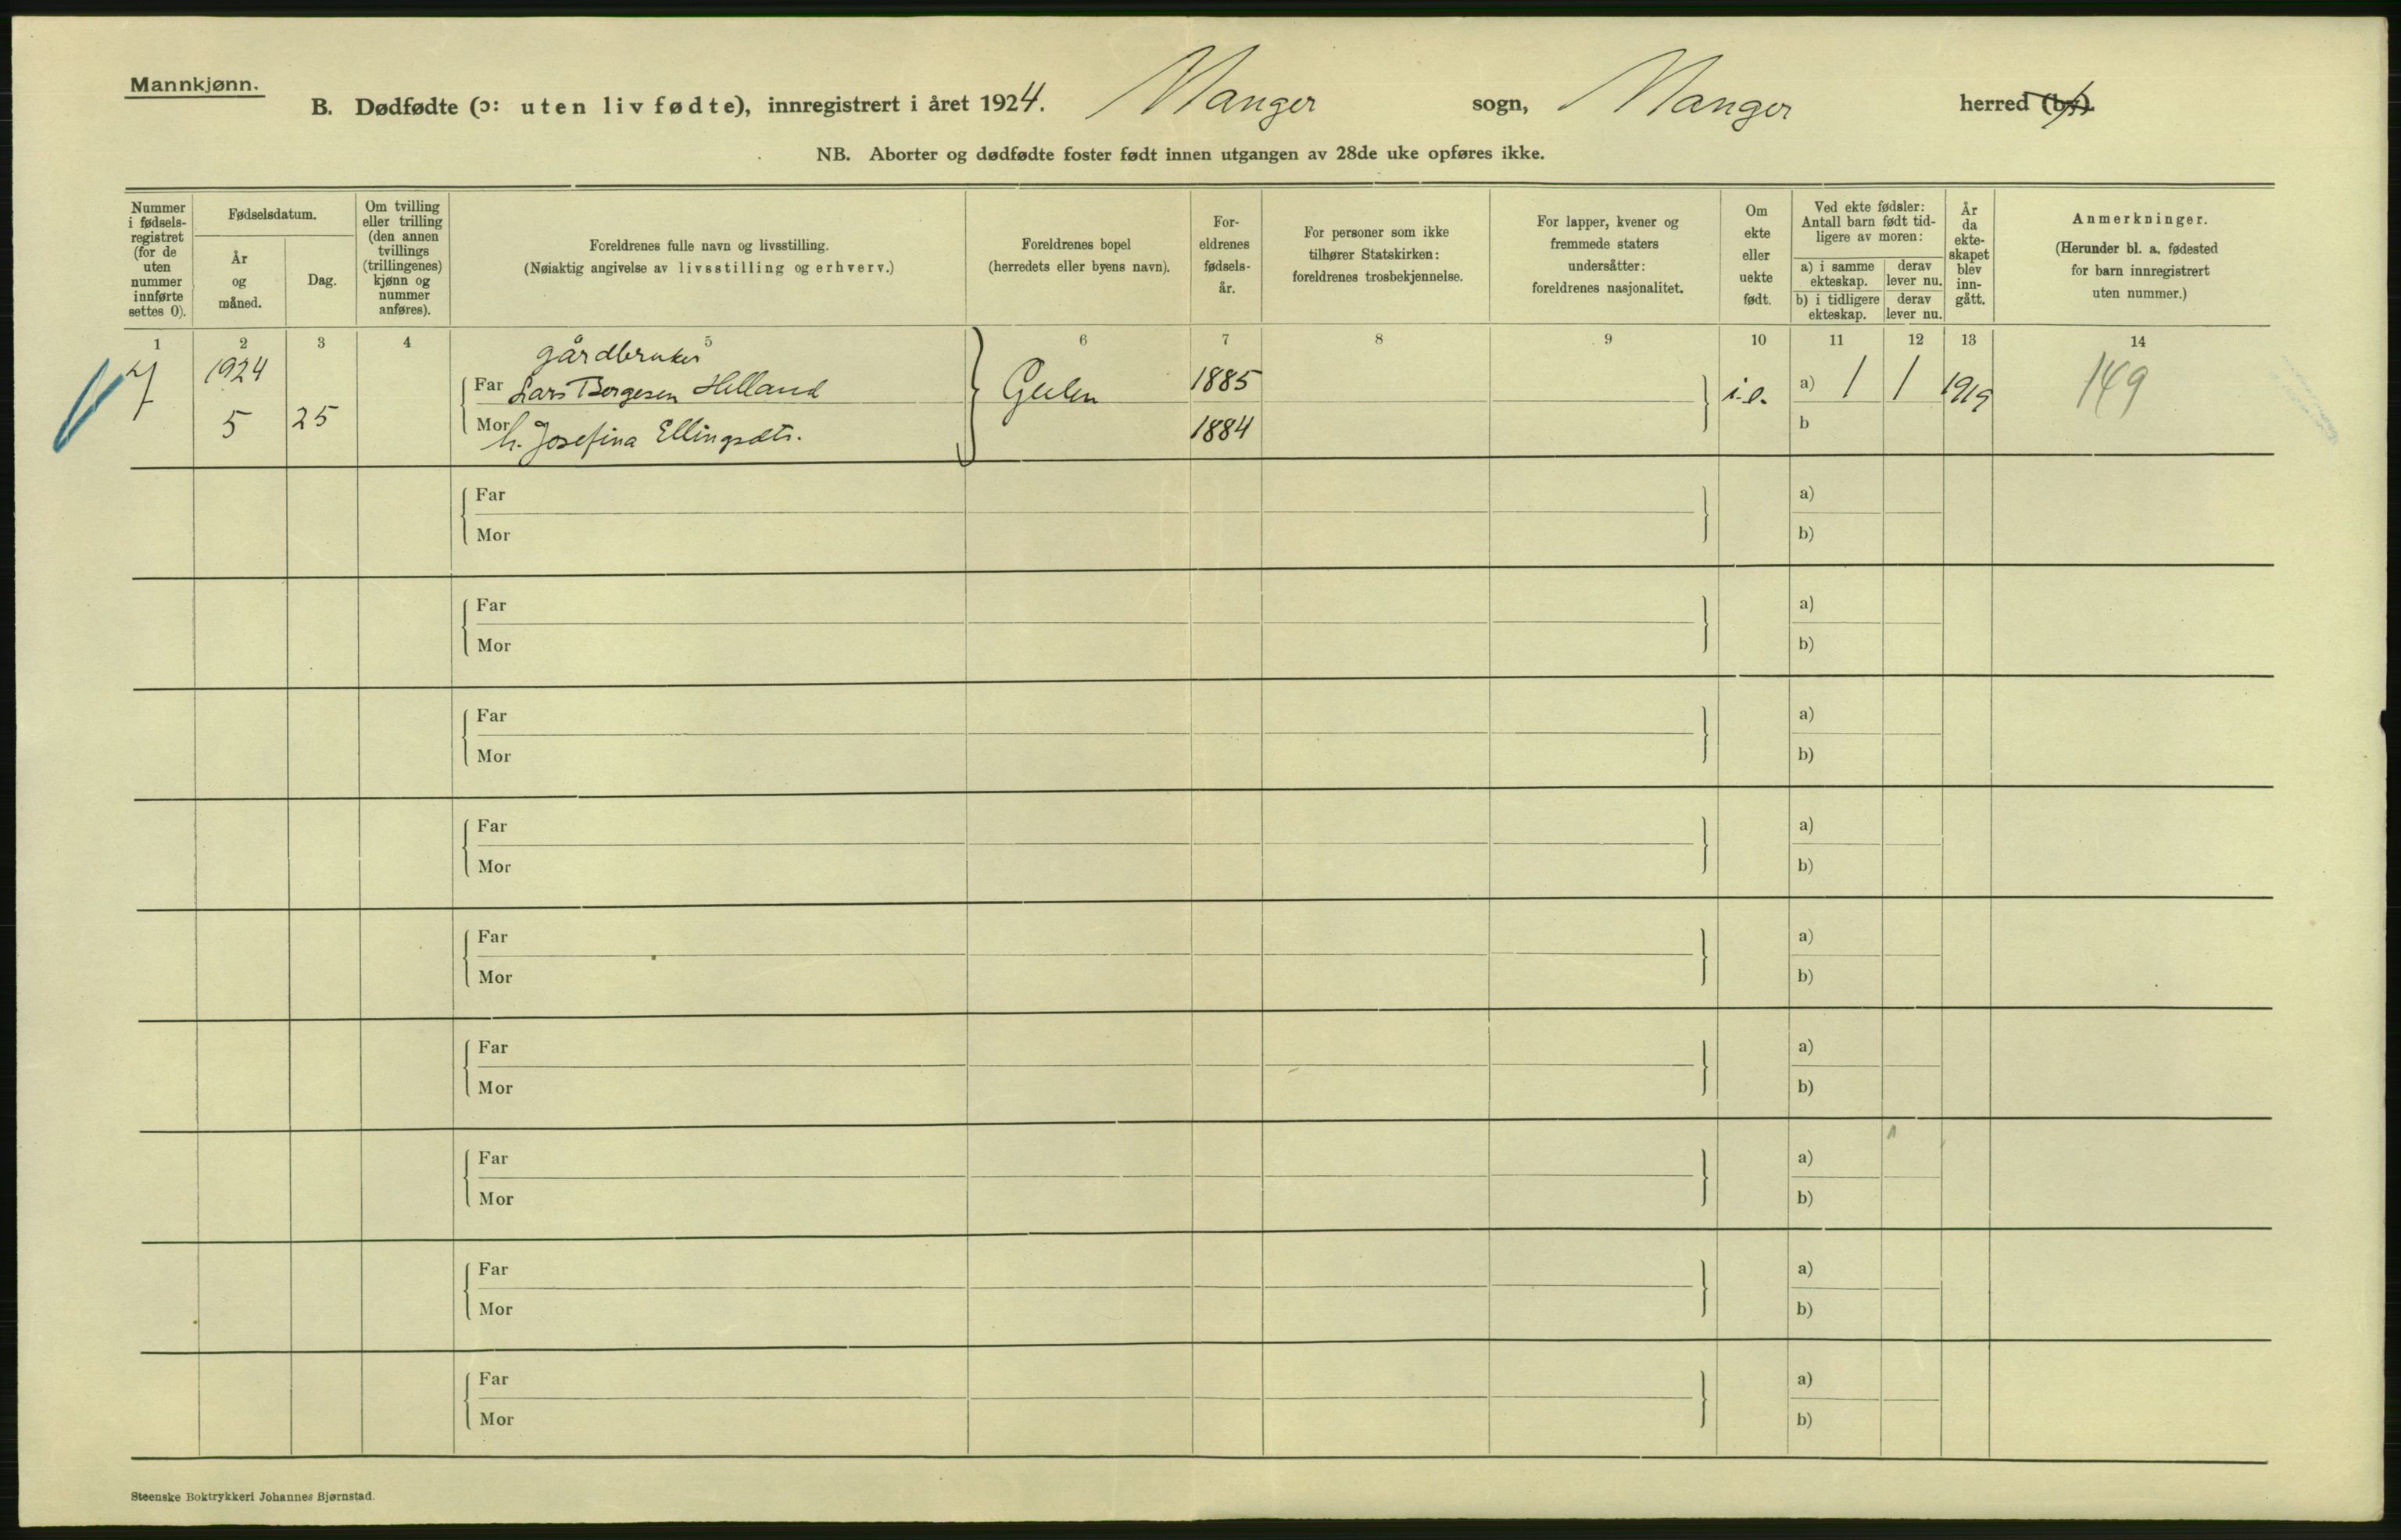 Mannkjønn.
B. Dødfødte (ɔ: uten liv fødte), innregistrert i året 1924. Manger sogn, Manger herred (by).
NB. Aborter og dødfødte foster født innen utgangen av 28de uke opføres ikke.
Nummer i fødsels-registret (for de uten nummer innførte settes 0).
Fødselsdatum.
År og måned.
Dag.
Om tvilling eller trilling (den annen tvillings (trillingenes) kjønn og nummer anføres).
Foreldrenes fulle navn og livsstilling.
(Nøiaktig angivelse av livsstilling og erhverv.)
Foreldrenes bopel
(herredets eller byens navn).
For-eldrenes fødsels-år.
For personer som ikke tilhører Statskirken: foreldrenes trosbekjennelse.
For lapper, kvener og fremmede staters undersåtter: foreldrenes nasjonalitet.
Om ekte eller uekte født.
Ved ekte fødsler: Antall barn født tid-ligere av moren:
a) i samme ekteskap. derav lever nu.
b) i tidligere ekteskap. derav lever nu.
År da ekte-skapet blev inn-gått.
Anmerkninger.
(Herunder bl. a. fødested for barn innregistrert uten nummer.)
1 2 3 4 5 6 7 8 9 10 11 12 13 14
7 1924 gårdbruker
Far Lars Børgesen Helland Gulen 1885 i.e. a) 1 1 1919 149
5 25
Mor h. Josefina Ellingsdtr. 1884 b
Far a)
Mor b)
Far a)
Mor b)
Far a)
Mor b)
Far a)
Mor b)
Far a)
Mor b)
Far a)
Mor b)
Far a)
Mor b)
Far a)
Mor b)
Far a)
Mor b)
Steenske Boktrykkeri Johannes Bjørnstad.